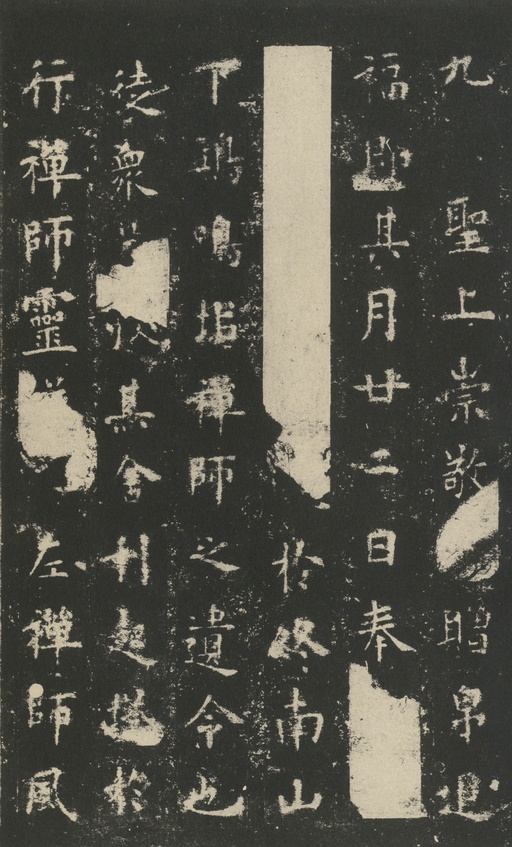 九聖上崇敬贈帛追
福即其月廿二日奉
於終南山
下鵄鳴禪師之遺令也
徒衆收其舍利起塔於
行禪師靈左禪師風